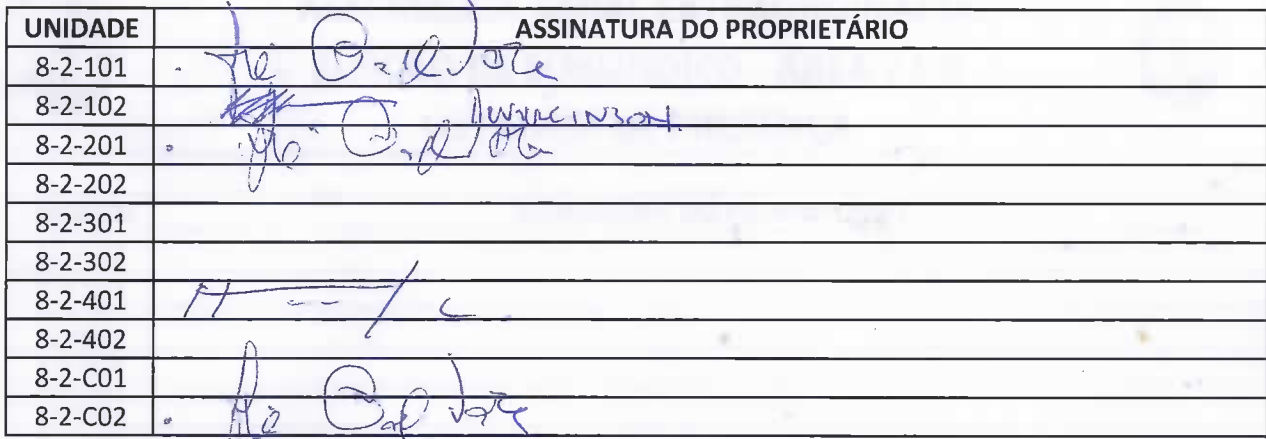 UNIDADE ASSINATURA DO PROPRIETÁRIO
8-2-101
8-2-102
8-2-201
8-2-202
8-2-301
8-2-302
8-2-401
8-2-402
8-2-C01
8-2-C02